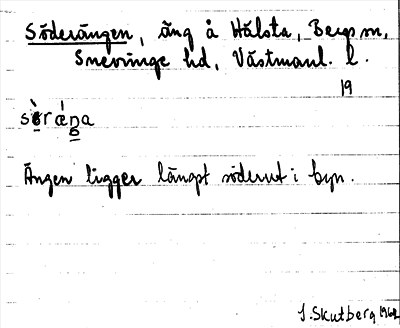 Söderängen, äng å Hälsta, Bergs sn,
Snevringe hd, Västmanl. l.
19
Ängen ligger längst söderut i byn.
J. Skutberg